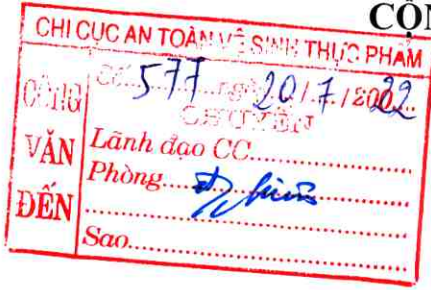 CỘN
CHI CỤC AN TOÀN VỆ SINH THỰC PHẨM
CÔNG VĂN ĐẾN
Số 577 ngày 20/7/2022
CHUYỂN
Lãnh đạo CC
Phòng
Sao